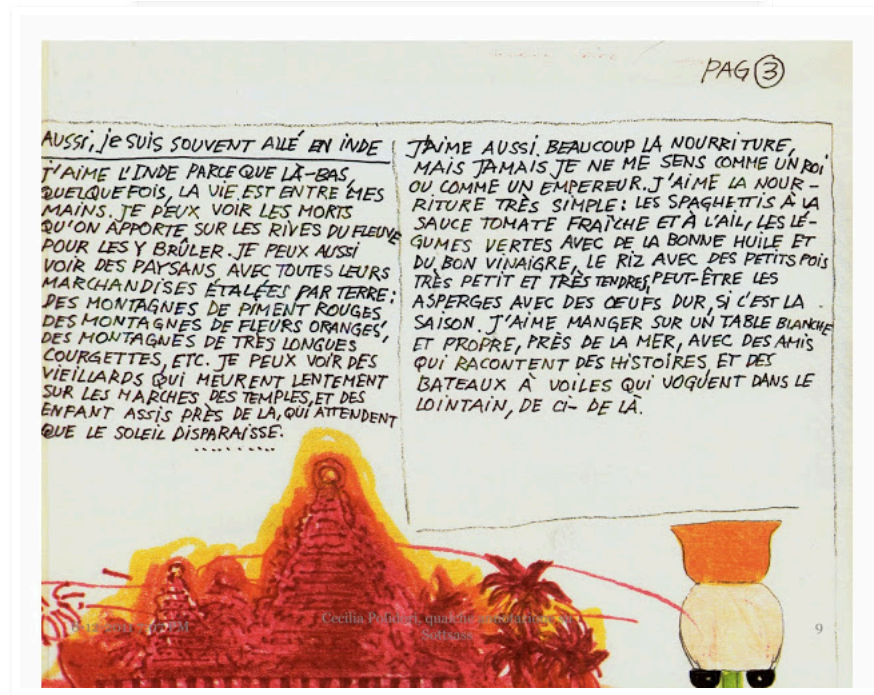 PAG 3
AUSSI, je SUIS SOUVENT ALLÉ EN INDE
J'AIME L'INDE PARCE QUE LÀ-BAS,
QUELQUEFOIS, LA VIE EST ENTRE MES
MAINS. JE PEUX VOIR LES MORTS
QU'ON APPORTE SUR LES RIVES DU FLEUVE
POUR LES Y BRÛLER. JE PEUX AUSSI
VOIR DES PAYSANS AVEC TOUTES LEURS
MARCHANDISES ÉTALÉES PAR TERRE:
DES MONTAGNES DE PIMENT ROUGES,
DES MONTAGNES DE FLEURS ORANGES,
DES MONTAGNES DE TRÈS LONGUES
COURGETTES, ETC. JE PEUX VOIR DES
VIEILLARDS QUI MEURENT LENTEMENT
SUR LES MARCHES DES TEMPLES, ET DES
ENFANT ASSIS PRÈS DE LA, QUI ATTENDENT
QUE LE SOLEIL DISPARAISSE.
J'AIME AUSSI BEAUCOUP LA NOURRITURE,
MAIS JAMAIS JE NE ME SENS COMME UN ROI
OU COMME UN EMPEREUR. J'AIME LA NOUR-
RITURE TRÈS SIMPLE: LES SPAGHETTIS À LA
SAUCE TOMATE FRAÎCHE ET À L'AIL, LES LÉ-
GUMES VERTES AVEC DE LA BONNE HUILE ET
DU BON VINAIGRE, LE RIZ AVEC DES PETITS POIS
TRÈS PETIT ET TRÈS TENDRES, PEUT-ÊTRE LES
ASPERGES AVEC DES ŒUFS DUR, SI C'EST LA
SAISON. J'AIME MANGER SUR UN TABLE BLANCHE
ET PROPRE, PRÈS DE LA MER, AVEC DES AMIS
QUI RACONTENT DES HISTOIRES, ET DES
BATEAUX À VOILES QUI VOGUENT DANS LE
LOINTAIN, DE CI- DE LÀ.
Cecilia Polidori, qualche annotazione su
Sottsass
9